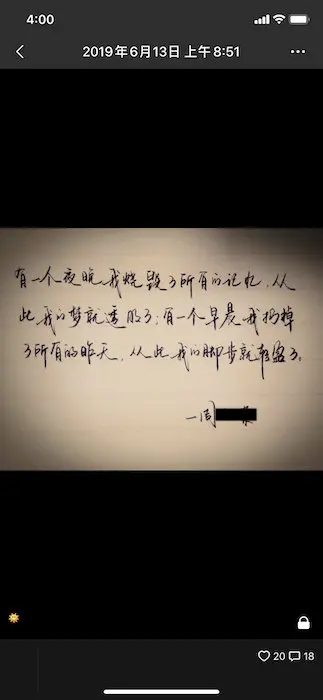 4:00
2019年6月13日 上午8:51
有一个夜晚我烧毁了所有的记忆，从
此我的梦就透明了；有一个早晨我扔掉
了所有的昨天，从此我的脚步就轻盈了。
一周
20 18